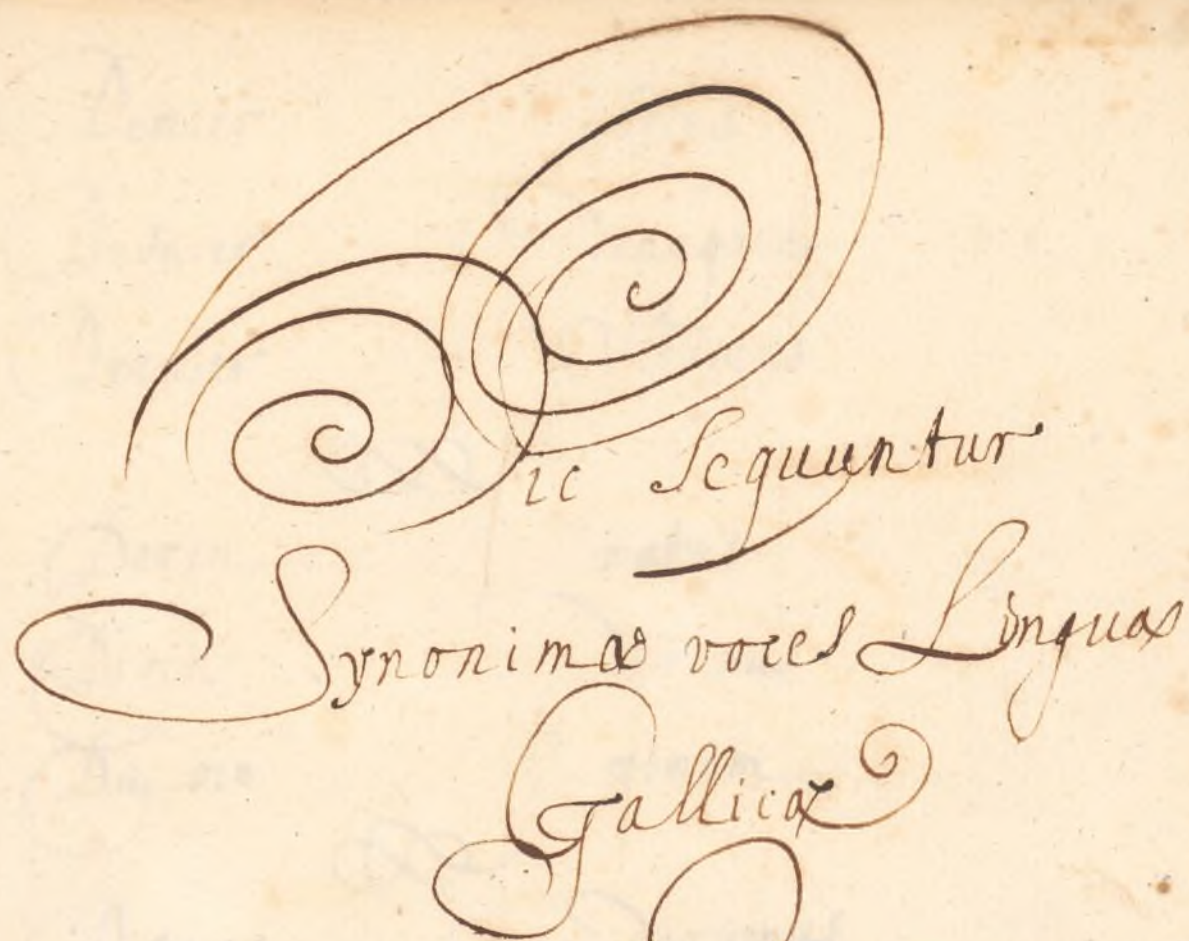 Hic Sequuntur
Synonimæ voces Linguæ
Gallicæ